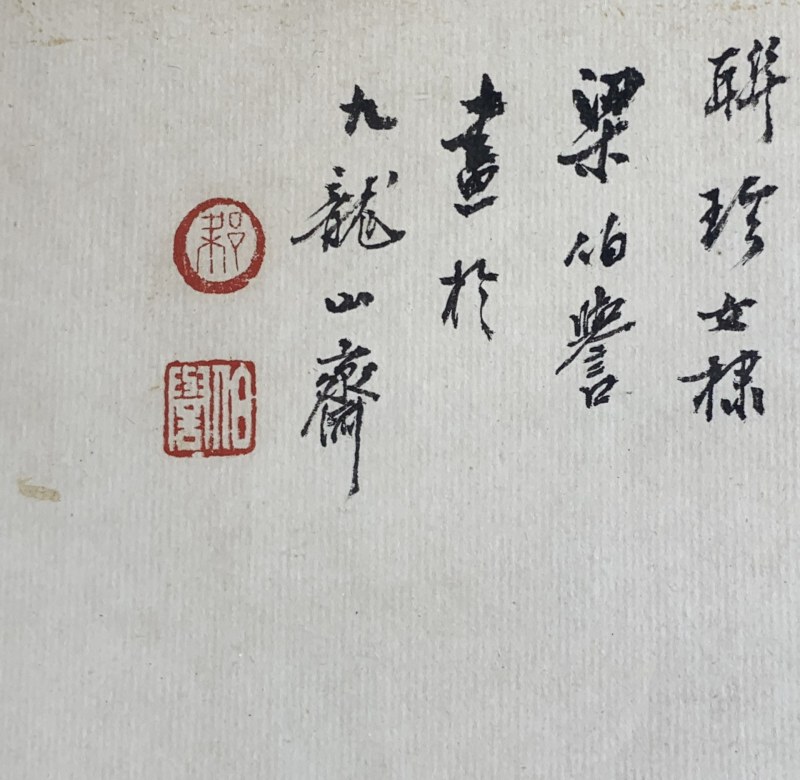 聯珍女棣
梁伯譽
畫於
九龍山齋
伯譽